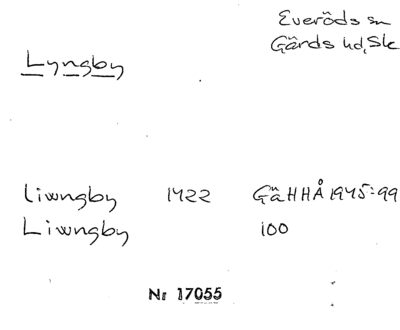 Everöds sn
Gärds hd, Sk
Lyngby
liwngby 1422 GäHHÅ 1945:99
Liwngby 100
Nr 17055